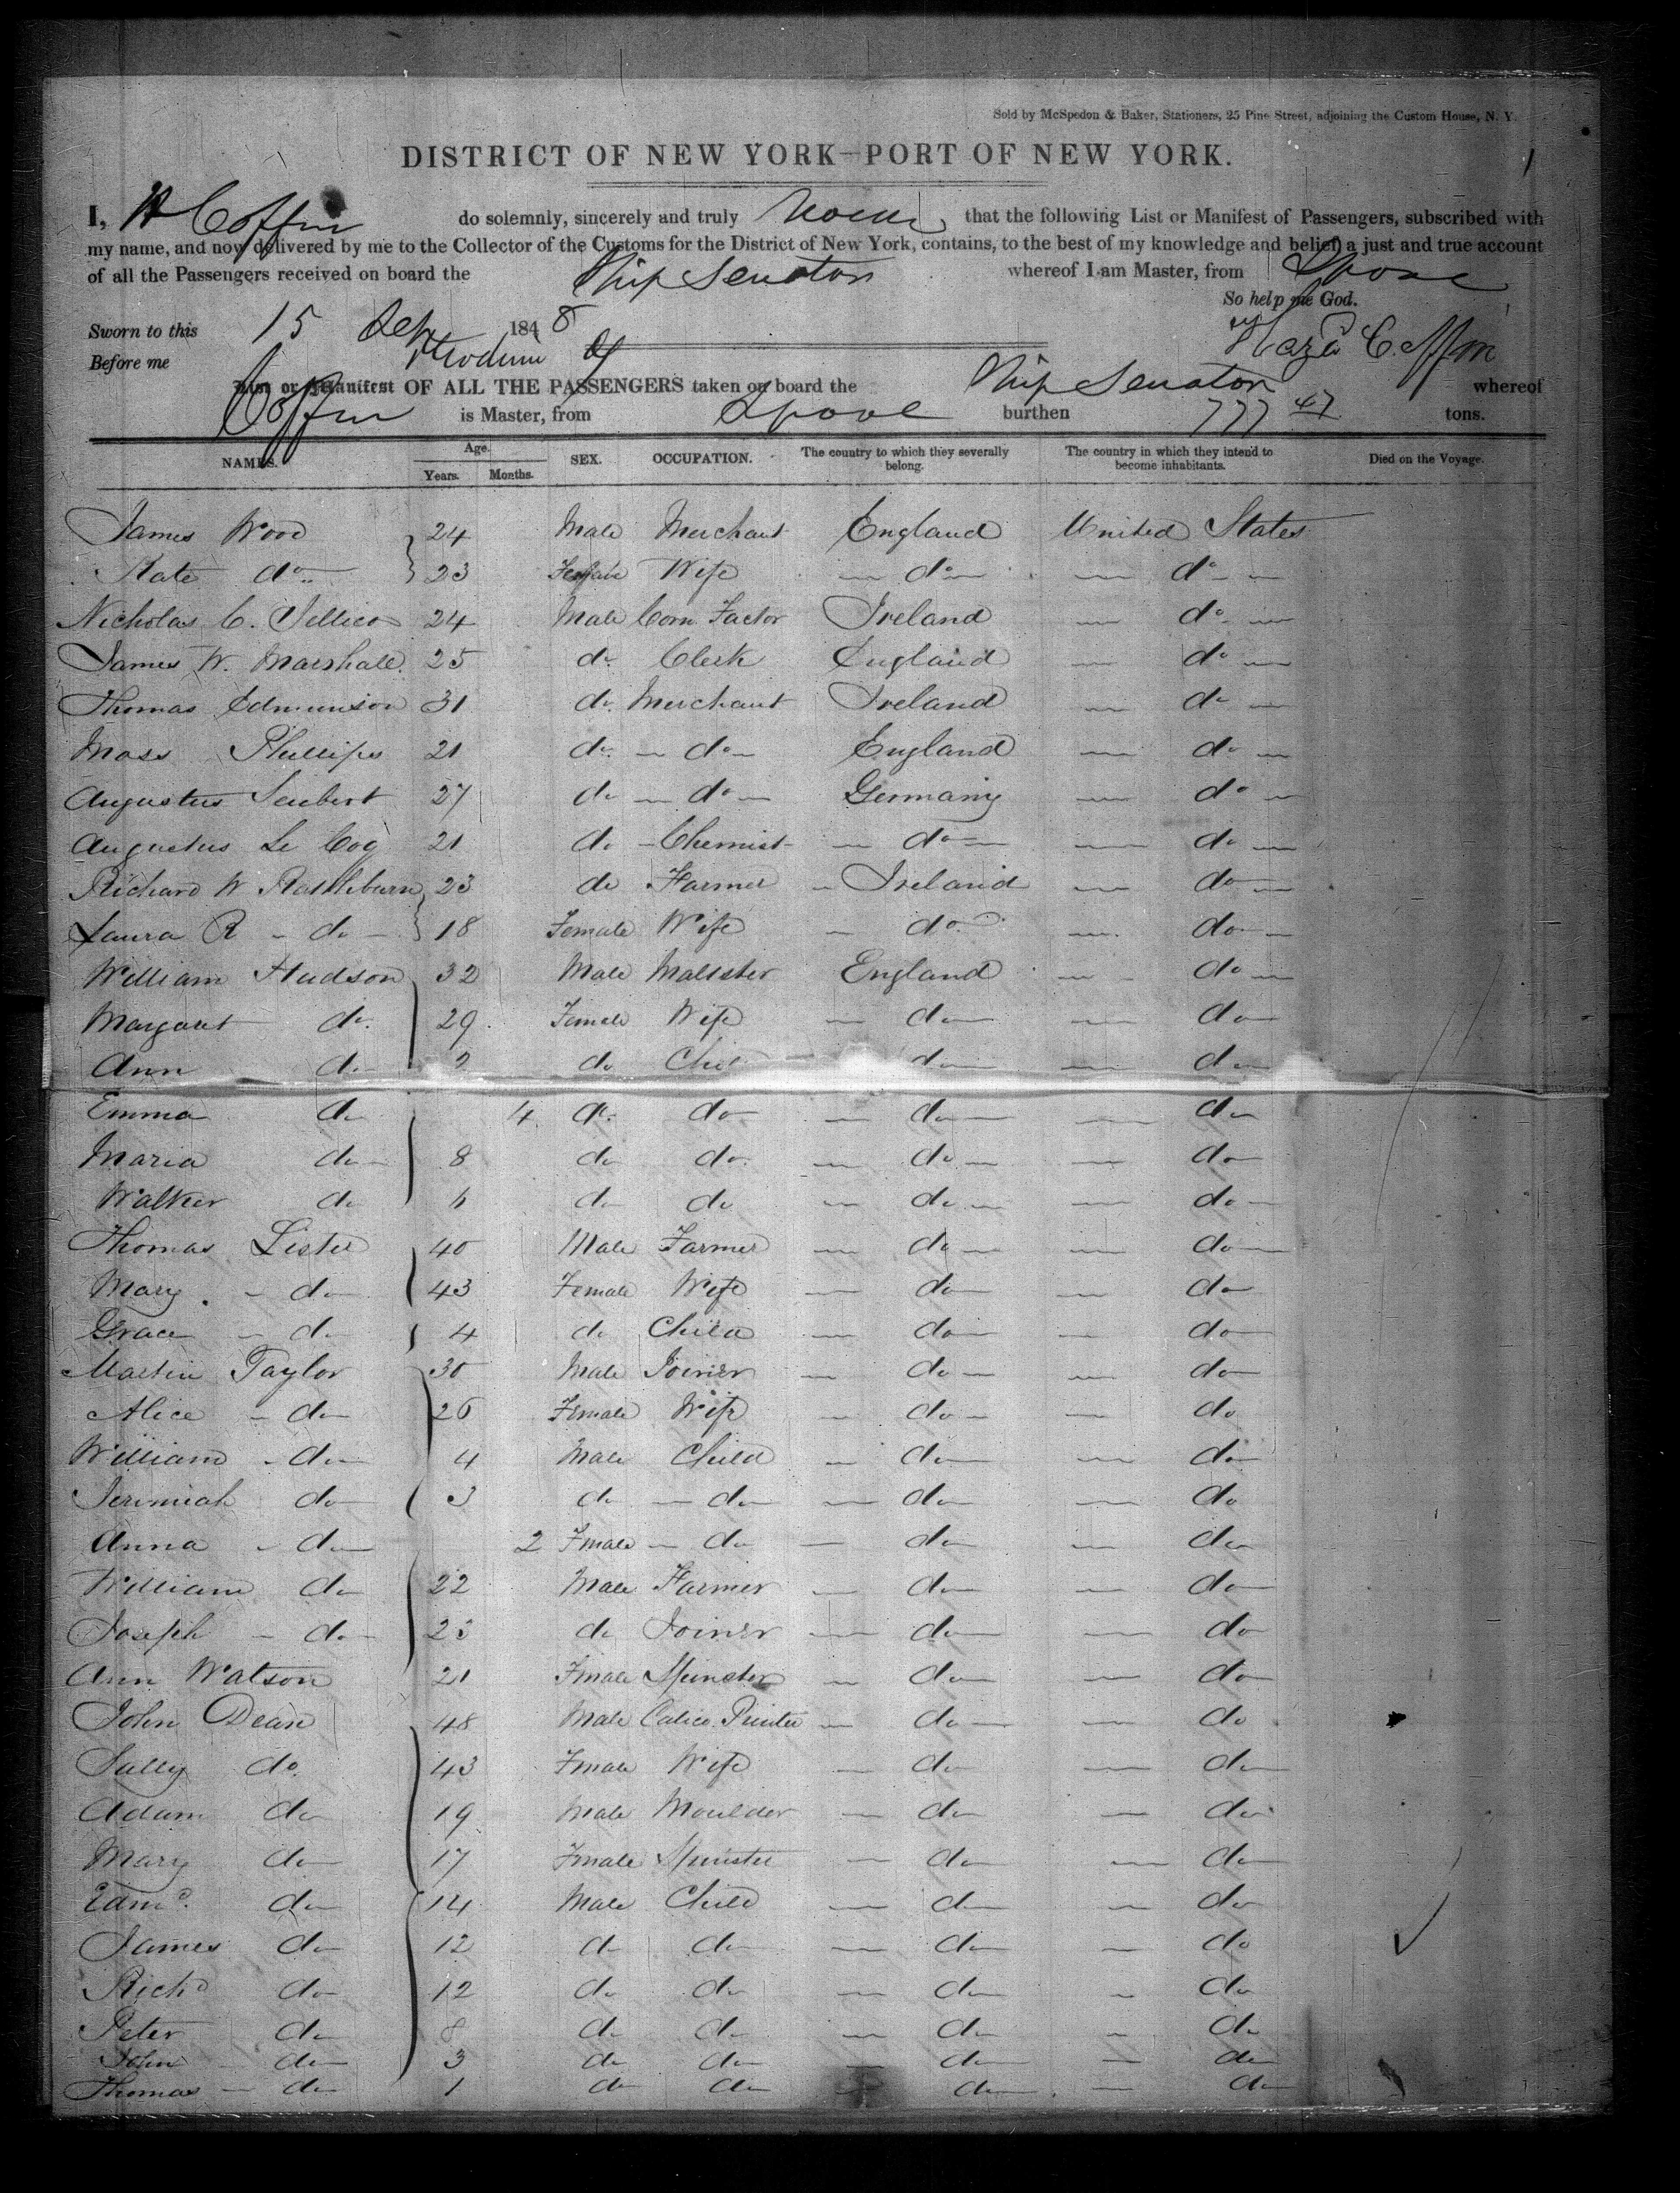 Sold by McSpedon & Baker, Stationers, 25 Pine Street, adjoining the Custom House, N. Y.
DISTRICT OF NEW YORK—PORT OF NEW YORK.
I, H Coffin do solemnly, sincerely and truly that the following List or Manifest of Passengers, subscribed with
my name, and now delivered by me to the Collector of the Customs for the District of New York, contains, to the best of my knowledge and belief, a just and true account
of all the Passengers received on board the Ship Senator whereof I am Master, from Lpool
So help me God.
Sworn to this 15 Sep 1848
Before me Coffin
List or Manifest OF ALL THE PASSENGERS taken on board the Ship Senator whereof
Coffin is Master, from Lpool burthen 777 47 tons.
NAMES. Age. Years. Months. SEX. OCCUPATION. The country to which they severally belong. The country in which they intend to become inhabitants. Died on the Voyage.
James Wood 24 Male Merchant England United States
Kate do 23 Female Wife do do
Nicholas C. Jellico 24 Male Corn Factor Ireland do
James W. Marshall 25 do Clerk England do
Thomas Edmunson 31 do Merchant Ireland do
Moss Phillips 21 do do England do
Augustus Seubert 27 do do Germany do
Augustus Le Coq 21 do Chemist do do
Richard W Rathbburn 23 do Farmer Ireland do
Laura R do 18 Female Wife do do
William Hudson 32 Male Maltster England do
Margaret do 29 Female Wife do do
Ann do 2 do Child do do
Emma do 4 do do do do
Maria do 8 do do do do
Walker do 6 do do do do
Thomas Lister 40 Male Farmer do do
Mary do 43 Female Wife do do
Grace do 4 do Child do do
Martin Taylor 30 Male Joiner do do
Alice do 26 Female Wife do do
William do 4 Male Child do do
Jerimiah do 3 do do do do
Anna do 2 Fmale do do do
William do 22 Male Farmer do do
Joseph do 23 do Joiner do do
Ann Watson 21 Fmale Spinster do do
John Dean 48 Male Calico Printer do do
Sally do 43 Fmale Wife do do
Adam do 19 Male Moulder do do
Mary do 17 Fmale Spinster do do
Edmd. do 14 Male Child do do
James do 12 do do do do
Richd do 12 do do do do
Peter do 8 do do do do
John do 3 do do do do
Thomas do 1 do do do do